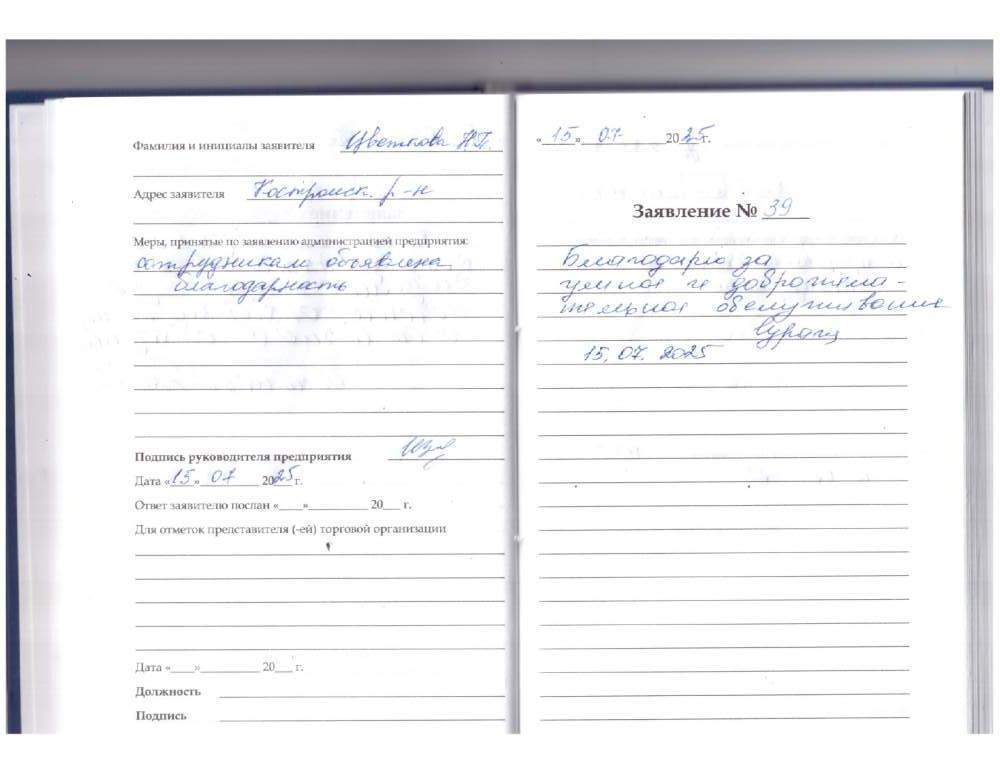 Фамилия и инициалы заявителя Цветкова Н.П.
Адрес заявителя Костромск. р-н
Меры, принятые по заявлению администрацией предприятия:
сотрудникам объявлена
благодарность
Подпись руководителя предприятия
Дата «15» 07 2025 г.
Ответ заявителю послан «____»__________ 20___ г.
Для отметок представителя (-ей) торговой организации
Дата «____»__________ 20___ г.
Должность
Подпись
«15» 07 2025 г.
Заявление № 39
Благодарю за
умное и доброжела-
тельное обслуживание
15.07.2025